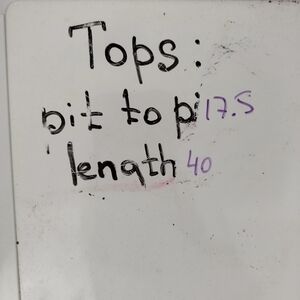 Tops:
pit to pi 17.5
length 40